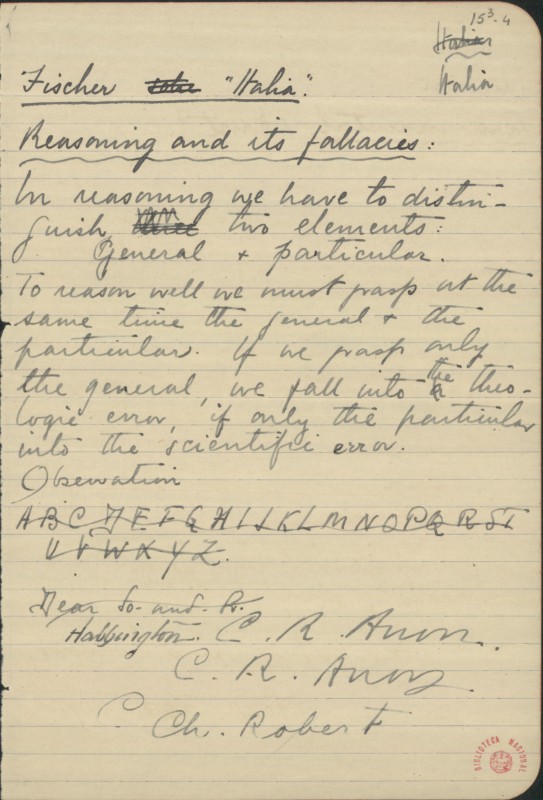 15³-4
Italia
Italia
"Fischer "Italia".
Reasoning and its fallacies:
In reasoning we have to distin-
guish three two elements:
General & particular.
To reason well we must grasp at the
same time the general & the
particular. If we grasp only
the general, we fall into the theo-
logic error, if only the particular
into the scientific error.
Observation
A B C D E F G H I J K L M N O P Q R S T
U V W X Y Z.
Dear So-and-So.
C. R. Anon.
C. R. Anon
C Ch. Robert
BIBLIOTECA NACIONAL